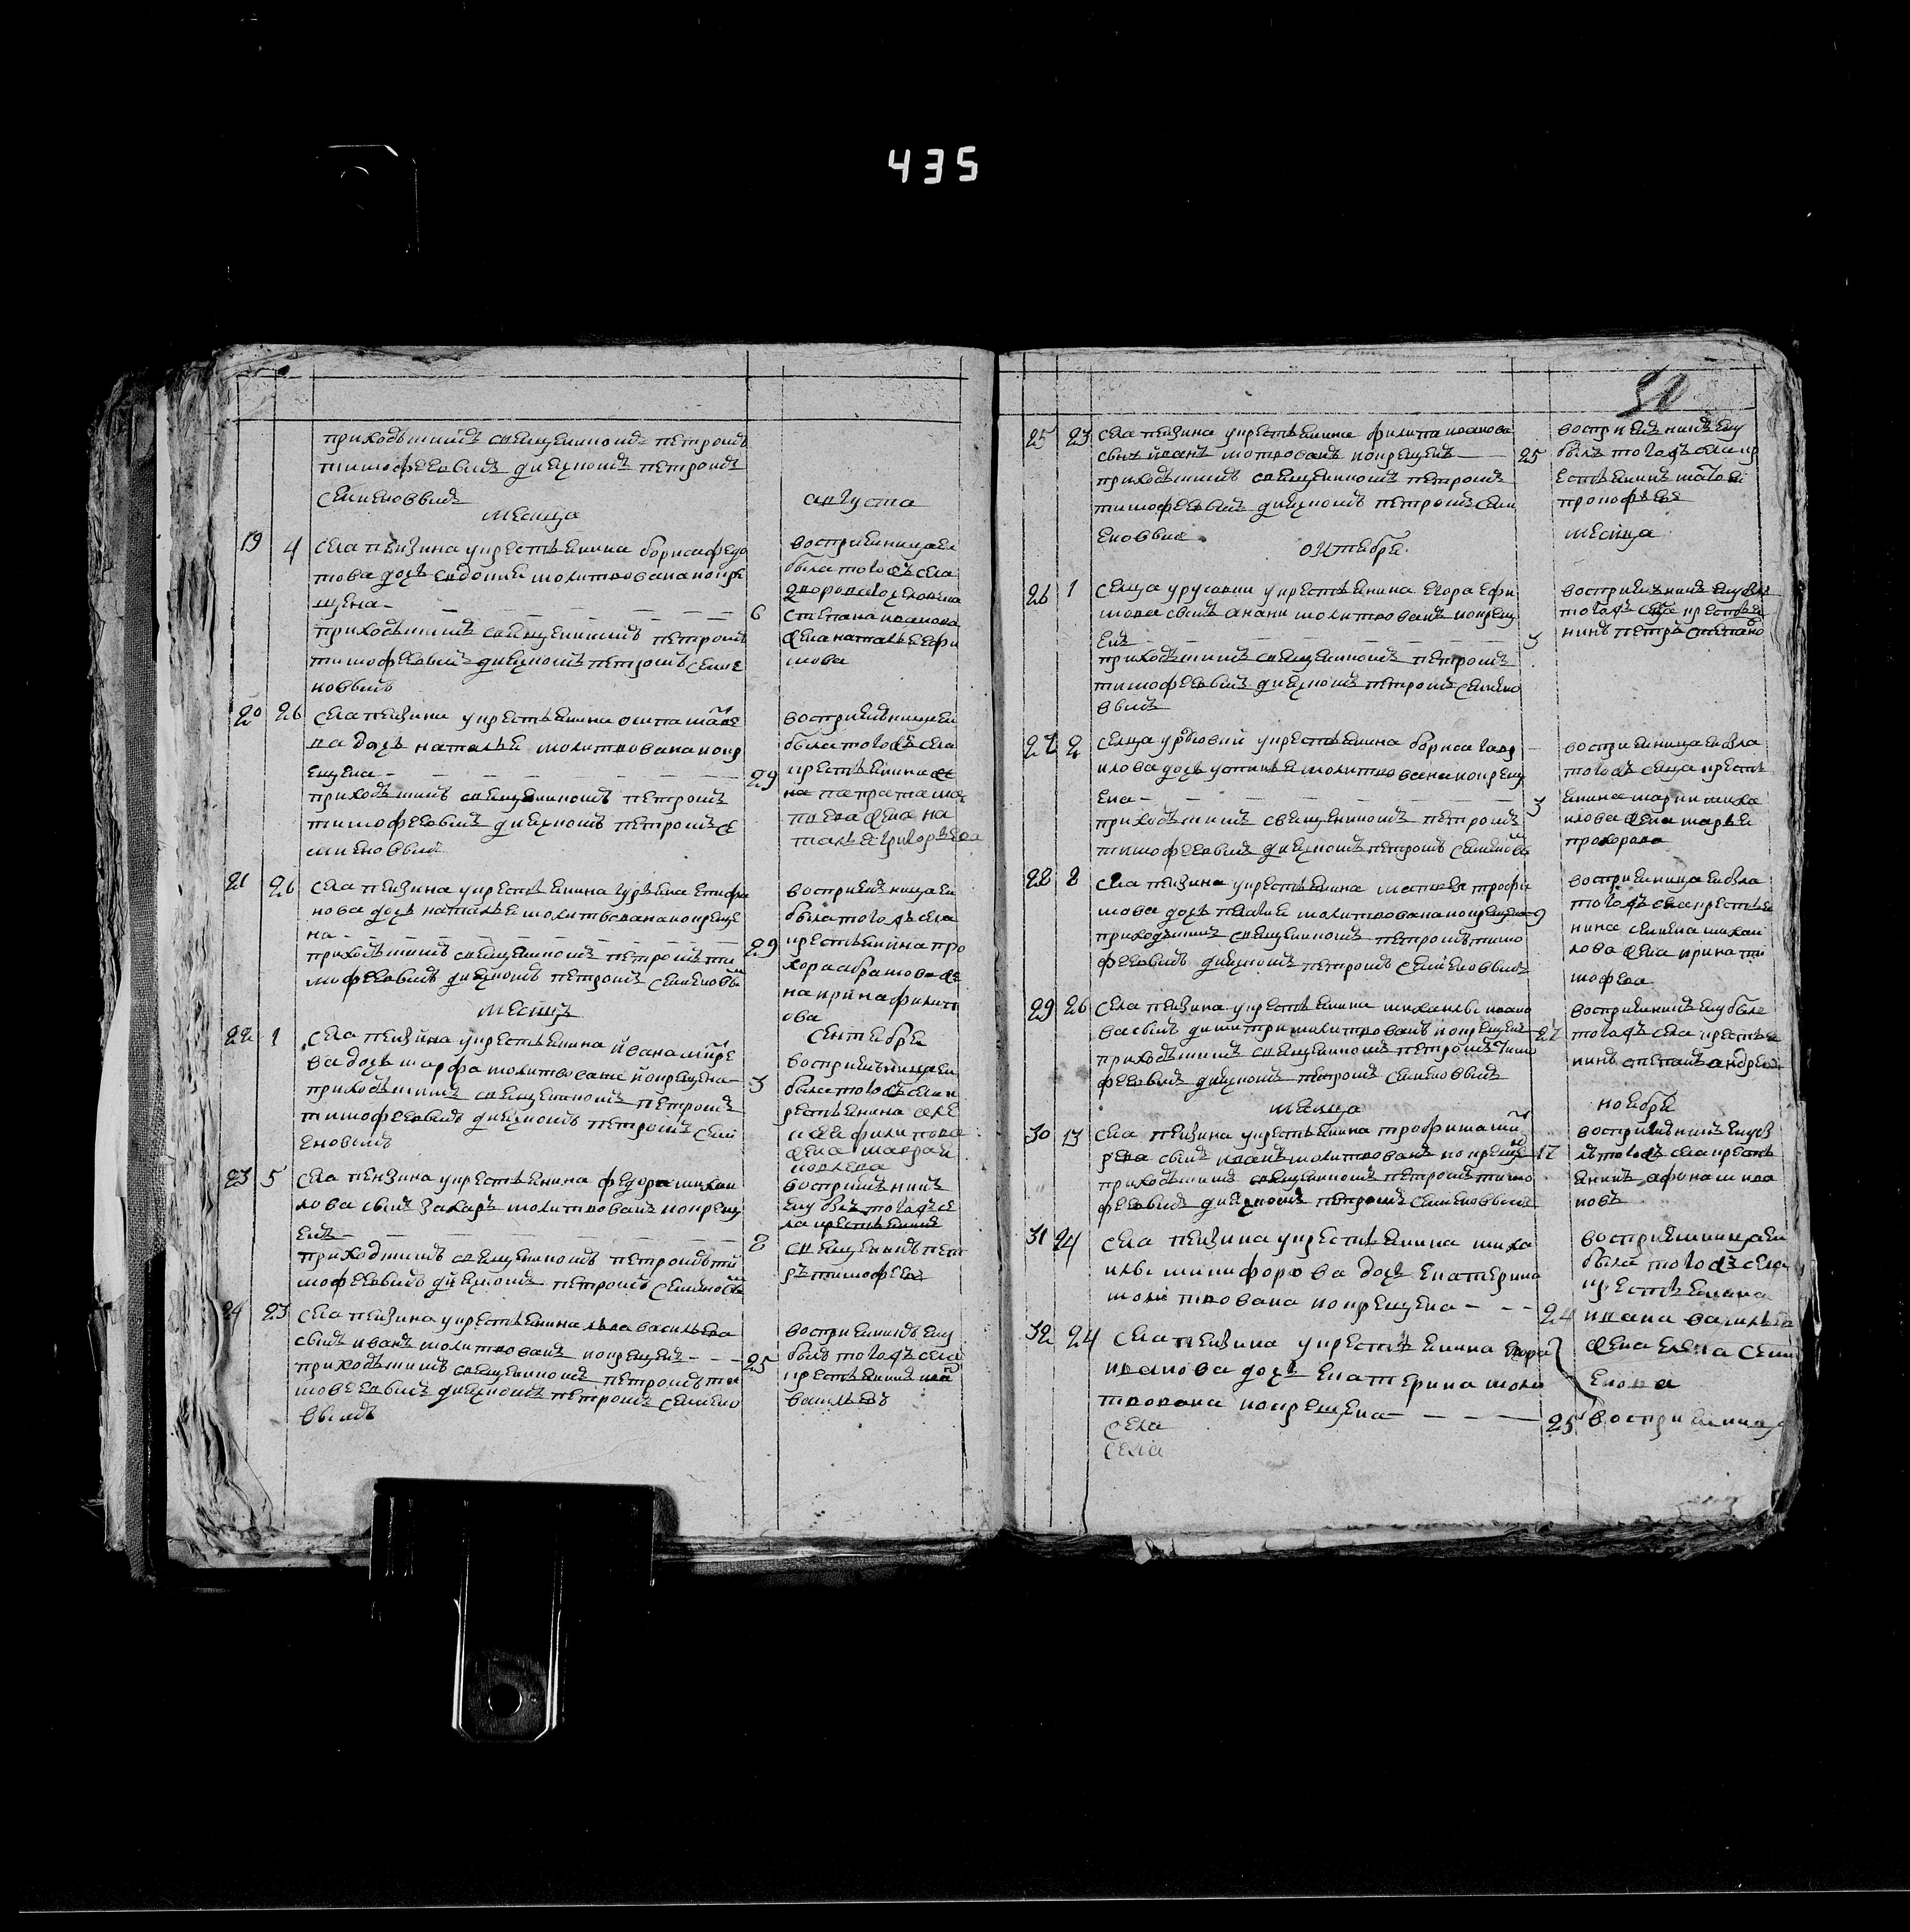 435
приходъшимъ священномъ петромъ
тимофеевымъ диячкомъ петромъ
семеновымъ
месяца
августа
19 4 села пензина у крестьенина бориса федо
това дочь евдокие молитвована и кре
щена
приходъшимъ священникомъ петромъ
тимофеевымъ диячкомъ петромъ семе
новымъ
6
восприемница еи
была тогожъ села
дворова человека
степана иванова
жена наталье ефи
мова
20 26 села пензина у крестьенина
ва дочь наталье молитвована и кр
ещена
приходъшимъ священникомъ петромъ
тимофеевымъ диячкомъ петромъ се
меновымъ
29
восприемница еи
была тогожъ села
крестьенина же
на
жена на
талье григорьева
21 26 села пензина у крестьенина гурьена епифа
нова дочь наталье молитвована и креще
на
приходъшимъ священникомъ петромъ ти
мофеевымъ диячкомъ петромъ семеновы
29
восприемница еи
была тогожъ села
крестьенина про
хора абрамова же
на ирина филип
ова
месяцъ
сентебря
22 1 села пензина у крестьенина ивана
ва дочь марфа молитвована и крещена
приходъшимъ священникомъ петромъ
тимофеевымъ диячкомъ петромъ семе
еновымъ
3
восприемница еи
была тогожъ села к
рестьенина але
ксея филипова
жена
23 5 села пензина у крестьенина федора михаи
лова сынъ захаръ молитвованъ и крещ
енъ
приходшимъ священникомъ петромъ ти
мофеевымъ диячкомъ петромъ семеновы
8
восприемникъ
ему былъ тогожъ се
ла крестьенинъ
священникъ пет
ръ тимофеевъ
24 23 села пензина у крестьенина льва васильева
сынъ иванъ молитвованъ и крещенъ
приходъшимъ священникомъ петромъ ти
мофеевымъ диячкомъ петромъ семено
вымъ
25
восприемникъ ему
былъ тогожъ села
крестьенинъ
васильевъ
25 23 села пензина у крестьенина филипа иванова
сынъ иванъ молтвованъ и крещенъ
приходъшимъ священникомъ петромъ
тимофеевымъ диячкомъ петромъ семе
еновымъ
25
восприемникъ ему
былъ тогожъ села кр
естьенинъ
прокофьевъ
месяца
октебря
26 1 селца у крестьенина егора ефи
мова сынъ анани молитвованъ и крещ
енъ
приходъшимъ священникомъ петромъ
тимофеевымъ диячкомъ петромъ семено
вымъ
3
восприемникъ ему былъ
тогожъ селца крестье
нинъ петръ степано
27 2 селца у крестьенина бориса гавр
илова дочь устинье молитвована и крещ
ена
приходъшимъ священникомъ петромъ
тимофеевымъ диячкомъ петромъ семеновы
3
восприемница еи была
тогожъ селца крестъ
енина марки миха
илова жена марье
прохорова
28 8 села пензина у крестьенина матвея трофи
мова дочь пелагие молитвована и крещена
приходъшимъ священникомъ петромъ тимо
феевымъ диячкомъ петромъ семеновымъ
9
восприемница еи была
тогожъ села крестье
нина семена михаи
лова жена ирина ти
мофева
29 26 села пензина у крестьенина михаилы ивано
ва сынъ димитри молитвованъ и крещенъ
приходъшимъ священникомъ петромъ тимо
феевымъ диячкомъ петромъ семеновымъ
27
восприемникъ ему былъ
тогожъ села крестье
нинъ степанъ андреевъ
месяца
ноября
30 13 села пензина у крестьенина трофима
рева сынъ иванъ молитвованъ и крещено
приходъшимъ священникомъ петромъ тимо
феевымъ диячкомъ петромъ семеновымъ
17
восприемникъ ему бы
лъ тогожъ села кресть
енинъ афонаси ива
новъ
31 24 села пензина у крестьенина миха
илы никифорова дочь екатерина
молитвована и крещена
24
восприемница еи
была тогожъ села
крестьенина
ивана васильева
жена елена семи
енова
32 24 села пензина у крестьенина егора
иванова дочь екатерина моли
твована и крещена
25
восприемница
села
села